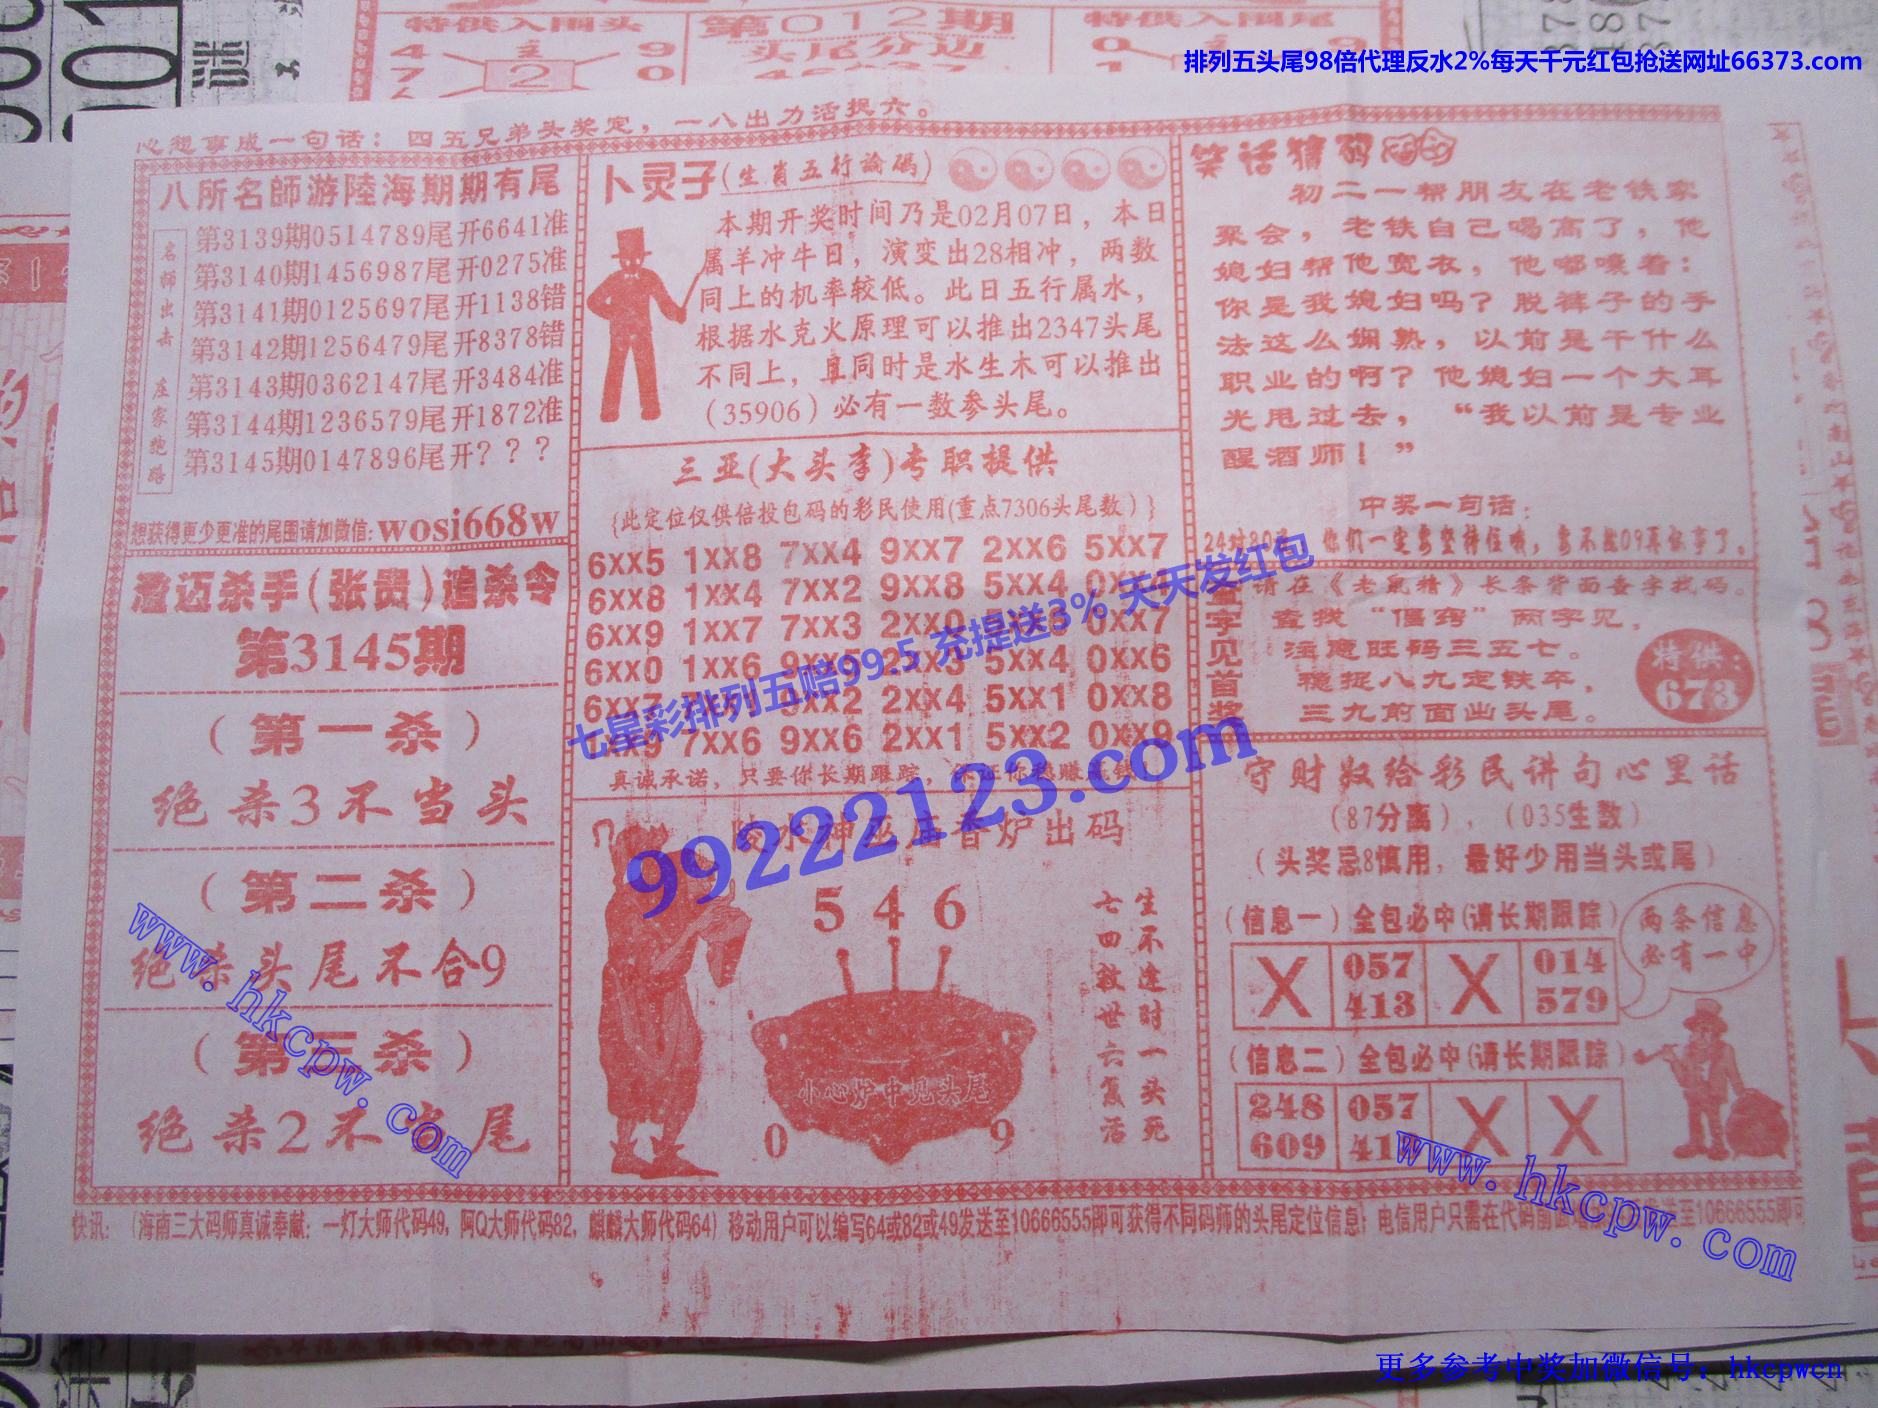 特供入围头
第012期
特供入围尾
头尾分边
排列五头尾98倍代理反水2%每天千元红包抢送网址66373.com
心想事成一句话：四五兄弟头奖定，一八出力活捉六。
八所名師游陸海期期有尾
名师出击 庄家跑路
第3139期0514789尾开6641准
第3140期1456987尾开0275准
第3141期0125697尾开1138错
第3142期1256479尾开8378错
第3143期0362147尾开3484准
第3144期1236579尾开1872准
第3145期0147896尾开？？？
想获得更少更准的尾围请加微信:wosi668w
澄迈杀手(张贵)追杀令
第3145期
（第一杀）
绝杀3不当头
（第二杀）
绝杀头尾不合9
（第三杀）
绝杀2不当尾
卜灵子(生肖五行論码)
本期开奖时间乃是02月07日，本日
属羊冲牛日，演变出28相冲，两数
同上的机率较低。此日五行属水，
根据水克火原理可以推出2347头尾
不同上，且同时是水生木可以推出
（35906）必有一数参头尾。
三亚(大头李)专职提供
{此定位仅供倍投包码的彩民使用(重点7306头尾数）}
6XX5 1XX8 7XX4 9XX7 2XX6 5XX7
6XX8 1XX4 7XX2 9XX8 5XX4 0XX4
6XX9 1XX7 7XX3 2XX0 0XX7
6XX0 1XX6 5XX4 0XX6
6XX7 2XX4 5XX1 0XX8
7XX6 9XX6 2XX1 5XX2 0XX9
真诚承诺，只要你长期跟踪，保证你稳赚
七星彩排列五赔99.5 充提送3% 天天发红包
99222123.com
陵水神巫庙香炉出码
5 4 6
小心炉中见头尾
0 9
生不逢时一头死
七四救世六复活
笑话猜码
初二一帮朋友在老铁家
聚会，老铁自己喝高了，他
媳妇帮他宽衣，他嘟囔着：
你是我媳妇吗？脱裤子的手
法这么娴熟，以前是干什么
职业的啊？他媳妇一个大耳
光甩过去，“我以前是专业
醒酒师！”
中奖一句话：
你们一定要坚持住哦，要不然09再做事了。
字见首奖
请在《老鼠精》长条背面查字找码。
查找“偃窍”两字见，
注意旺码三五七。
稳捉八九定铁卒，
三九前面出头尾。
特供：
673
守财奴给彩民讲句心里话
（87分离），（035生数）
（头奖忌8慎用，最好少用当头或尾）
（信息一）全包必中(请长期跟踪)
X 057 413 X 014 579
两条信息
必有一中
（信息二）全包必中(请长期跟踪)
248 609 057 41 X X
快讯：（海南三大码师真诚奉献：一灯大师代码49，阿Q大师代码82，麒麟大师代码64）移动用户可以编写64或82或49发送至10666555即可获得不同码师的头尾定位信息；电信用户只需在代码前面 至10666555即可
www.hkcpw.com
www.hkcpw.com
更多参考中奖加微信号：hkcpwcn